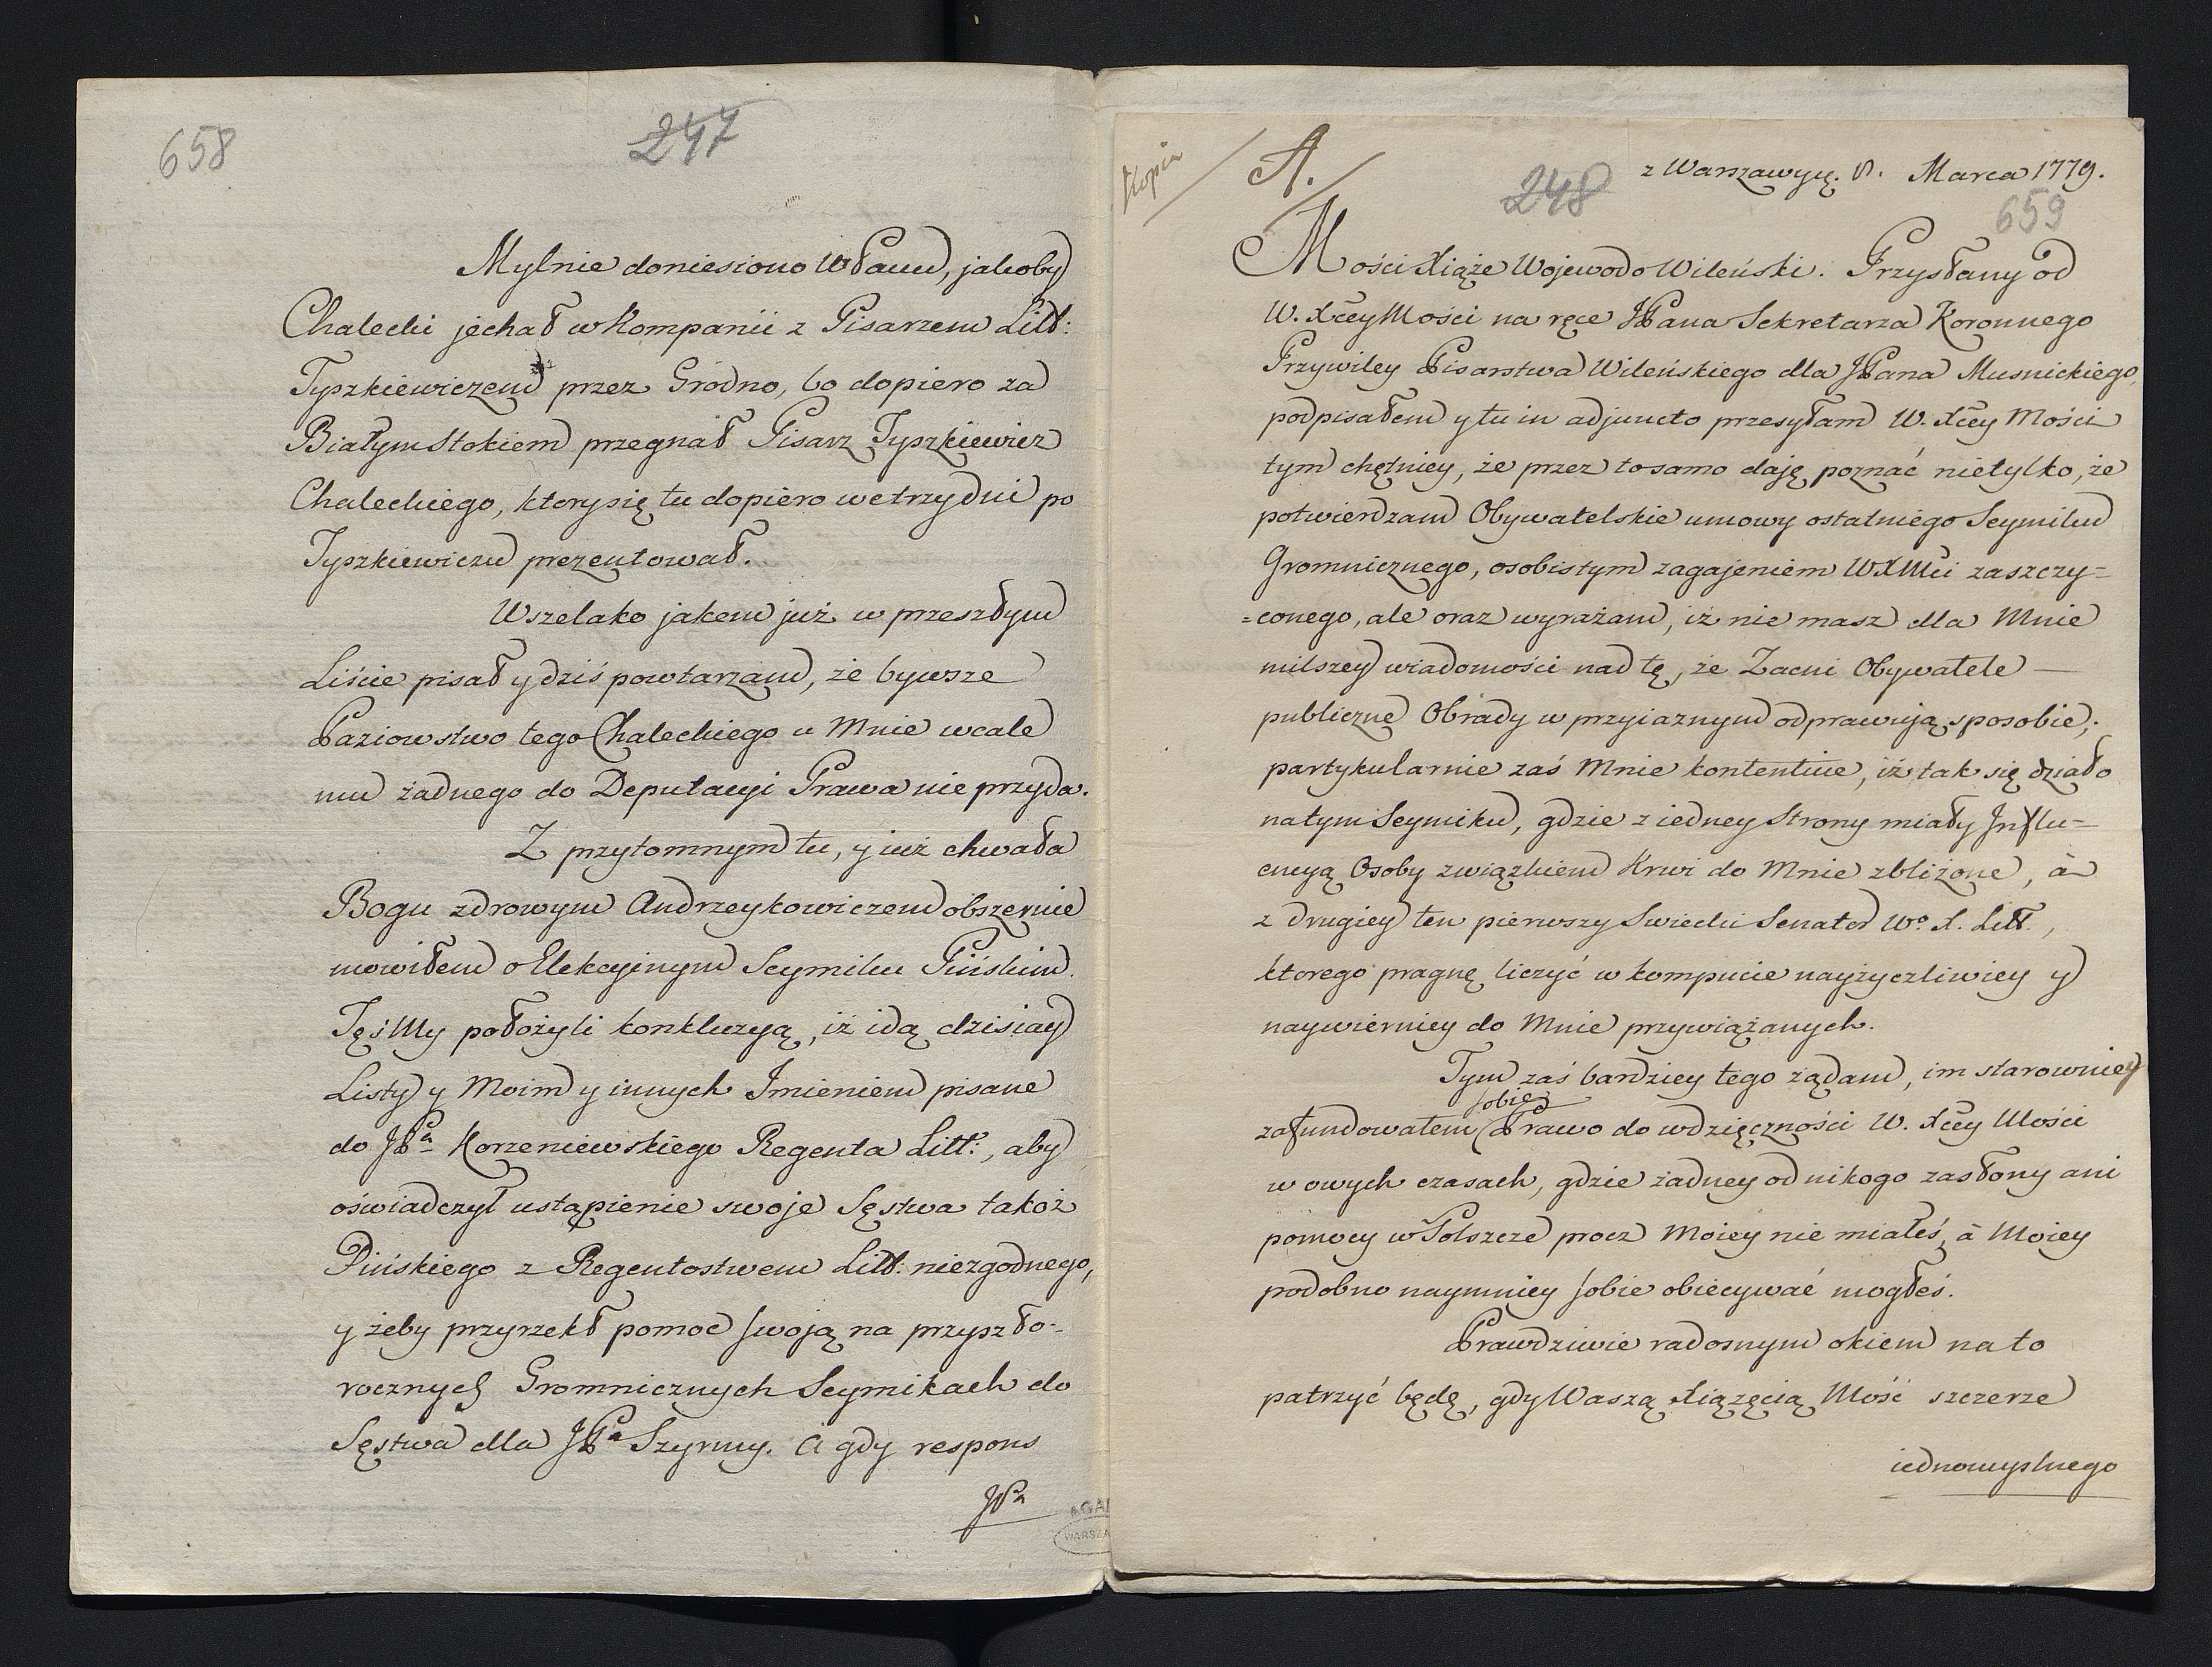 658
247
Mylnie doniesiono WPanu, jakoby
Chalecki jechał w Kompanii z Pisarzem Litt:
Tyszkiewiczem przez Grodno, bo dopiero za
Białymstokiem przegnał Pisarz Tyszkiewicz
Chaleckiego, ktory się tu dopiero we trzy dni po
Tyszkiewiczu prezentował.
Wszelako jakem już w przeszłym
Liście pisał y dziś powtarzam, że bywsze
Paziowstwo tego Chaleckiego u Mnie wcale
mu żadnego do Deputacyi Prawa nie przyda.
Z przytomnym tu, y już chwała
Bogu zdrowym Andrzeykowiczem obszernie
mowiłem o Elekcyinym Seymiku Pińskim.
Tęśmy położyli konkluzyą, iż idą dzisiay
Listy y Moim y innych Imieniem pisane
do JPa Korzeniewskiego Regenta Litt:, aby
oświadczył ustąpienie swoje Sęstwa takoż
Pińskiego z Regentostwem Litt: niezgodnego,
y żeby przyrzekł pomoc swoją na przyszło-
rocznych Gromnicznych Seymikach do
Sęstwa dla JPa Szyrmy. A gdy respons
JPa
AGAD
WARSZA
Kopia
A.
248
z Warszawy 8. Marca 1779.
659
Mości Xiąże Wojewodo Wileński. Przysłany od
W. Xcey Mości na ręce JPana Sekretarza Koronnego
Przywiley Pisarstwa Wileńskiego dla JPana Musnickiego,
podpisałem y tu in adjuncto przesyłam W. Xcey Mości
tym chętniey, że przez to samo daję poznać nietylko, że
potwierdzam Obywatelskie umowy ostatniego Seymiku
Gromnicznego, osobistym zagajeniem WXMci zaszczy=
=conego, ale oraz wyrażam, iż nie masz dla Mnie
milszey wiadomości nad tę, że Zacni Obywatele
publiczne Obrady w przyiaznym odprawują sposobie;
partykularnie zaś Mnie kontentuie, iż tak się działo
na tym Seymiku, gdzie z iedney Strony miały Influ=
encyą Osoby związkiem Krwi do Mnie zbliżone, à
z drugiey ten pierwszy Swiecki Senator Wo X. Litt.,
ktorego pragnę liczyć w kompucie nayżyczliwiey y
naywierniey do Mnie przywiązanych.
Tym zaś bardziey tego żądam, im starowniey
sobie
zafundowałem Prawo do wdzięczności W. Xcey Mości
w owych czasach, gdzie żadney od nikogo zasłony ani
pomocy w Polszcze procz Moiey nie miałeś, à Moiey
podobno naymniey sobie obiecywać mogłeś.
Prawdziwie radosnym okiem na to
patrzyć będę, gdy Waszą Xiążęcią Mość szczerze
iednomyslnego